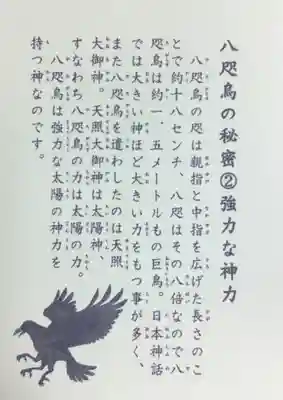 八咫烏の秘密②強力な神力
八咫烏の咫は親指と中指を広げた長さのこ
とで約十八センチ、八咫はその八倍なので八
咫烏は約一、五メートルもの巨鳥。日本神話
では大きい神ほど大きい力をもつ事が多く、
また八咫烏を遣わしたのは天照
大御神。天照大御神は太陽神、
すなわち八咫烏の力は太陽の力。
八咫烏は強力な太陽の神力を
持つ神なのです。